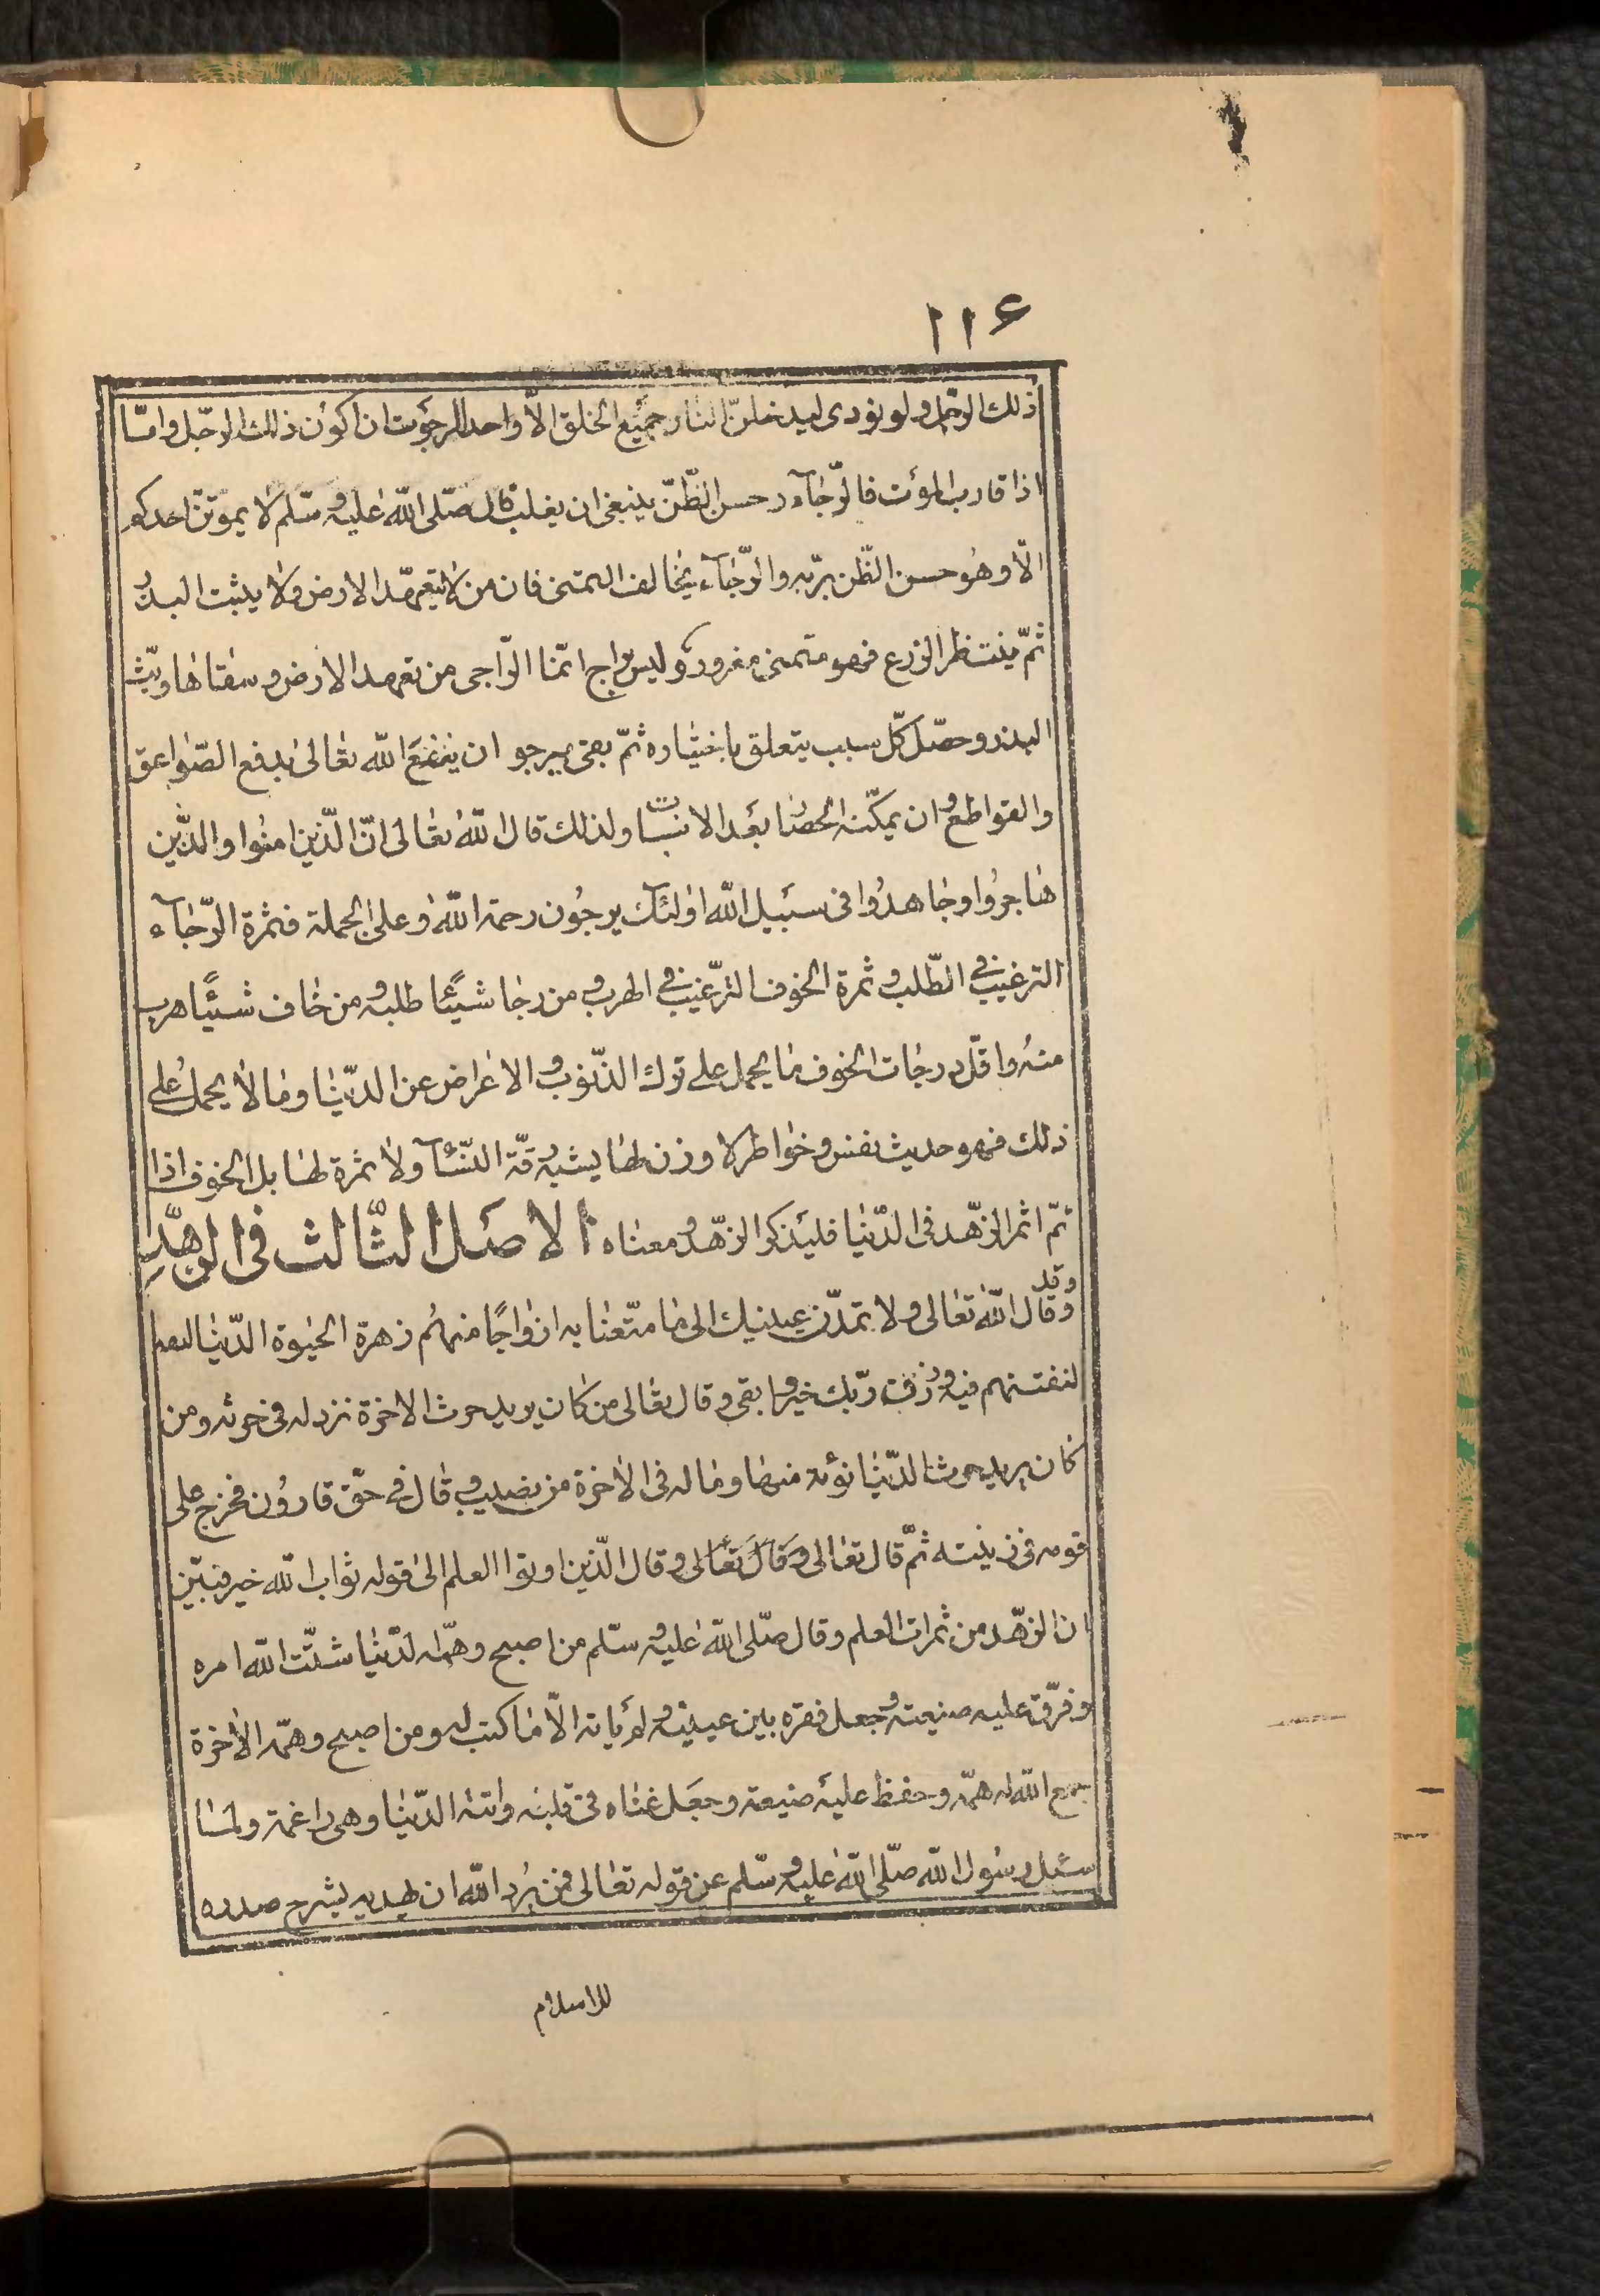 ١١٦
ذلك الرّجل ولو نودى ليدخلنّ النّار جميع الخلق الّا واحد الرجوت ان اكون ذلك الرّجل وامّا
اذا قارب الموت فالرّجآء وحسن الظّنّ ينبغى ان يغلب قال صلّى الله عليه وسّلم لا يموتنّ احدكم
الّا وهو حسن الظّن بربّه والرّجآء يخالف التمنى فان من لا يتعهّد الارض ولا يبثت البذر
ثمّ ينتظر الزرع فهو متمنى مغرور وليس براج انّما الرّاجى من تعهد الارض وسقاها وبثّ
البذر وحصّل كلّ سبب يتعلق باختياره ثمّ بقى يرجو ان ينفع الله تعالى بدفع الصّواعق
والقواطع وان يمكّنه الحصاد بعد الانبات ولذلك قال الله تعالى انّ الّذين امنوا والذّين
هاجروا وجاهدوا فى سبيل الله اولئك يرجون رحمة الله وعلى الجملة فثمرة الرّجآء
الترغيب فى الطّلب وثمرة الخوف الترّغيب فى الهرب ومن رجا شيئًا طلبه ومن خاف شيئًا هرب
منه واقلّ درجات الخوف ما يحمل على ترك الذّنوب والاعراض عن الدّنيا وما لا يحمل على
ذلك فهو حديث نفس وخواطر لا وزن لها يشبه رقّة النّسآ ولا ثمرة لها بل الخوف اذا
تمّ اثمر الزّهد فى الدّنيا فليذكر الزّهد ومعناه الاصل الثّالث فى الزّهد
وقد وقال الله تعالى ولا تمدّن عينيك الى ما متّعنا به ازواجًا منهم زهرة الحيوة الدّنيا
لنفتنهم فيه ورزق ربّك خير وابقى وقال تعالى من كان يريد حرث الاخرة نزد له فى حرثه ومن
كان يريد حرث الدّنيا نؤته منها وما له فى الاخرة من نصيب وقال فى حقّ قارون فخرج على
قومه فى زينته ثمّ قال تعالى وقال تعالى وقال الّذين اوتوا العلم الى قوله ثواب الله خير فبيّن
ان الزّهد من ثمرات العلم وقال صلّى الله عليه وسّلم من اصبح وهمّه الدّنيا شتّت الله امره
وفرّق عليه ضيعته وجعل فقره بين عينيه ولم يأته الّا ما كتب له ومن اصبح وهمّه الاخرة
جمع الله له همّه وحفظ عليه ضيعته وجعل غناه فى قلبه واتته الدّنيا وهى راغمة ولمّا
سئل رسول الله صلّى الله عليه وسّلم عن قوله تعالى فمن يرد الله ان يهديه يشرح صدره
للاسلام